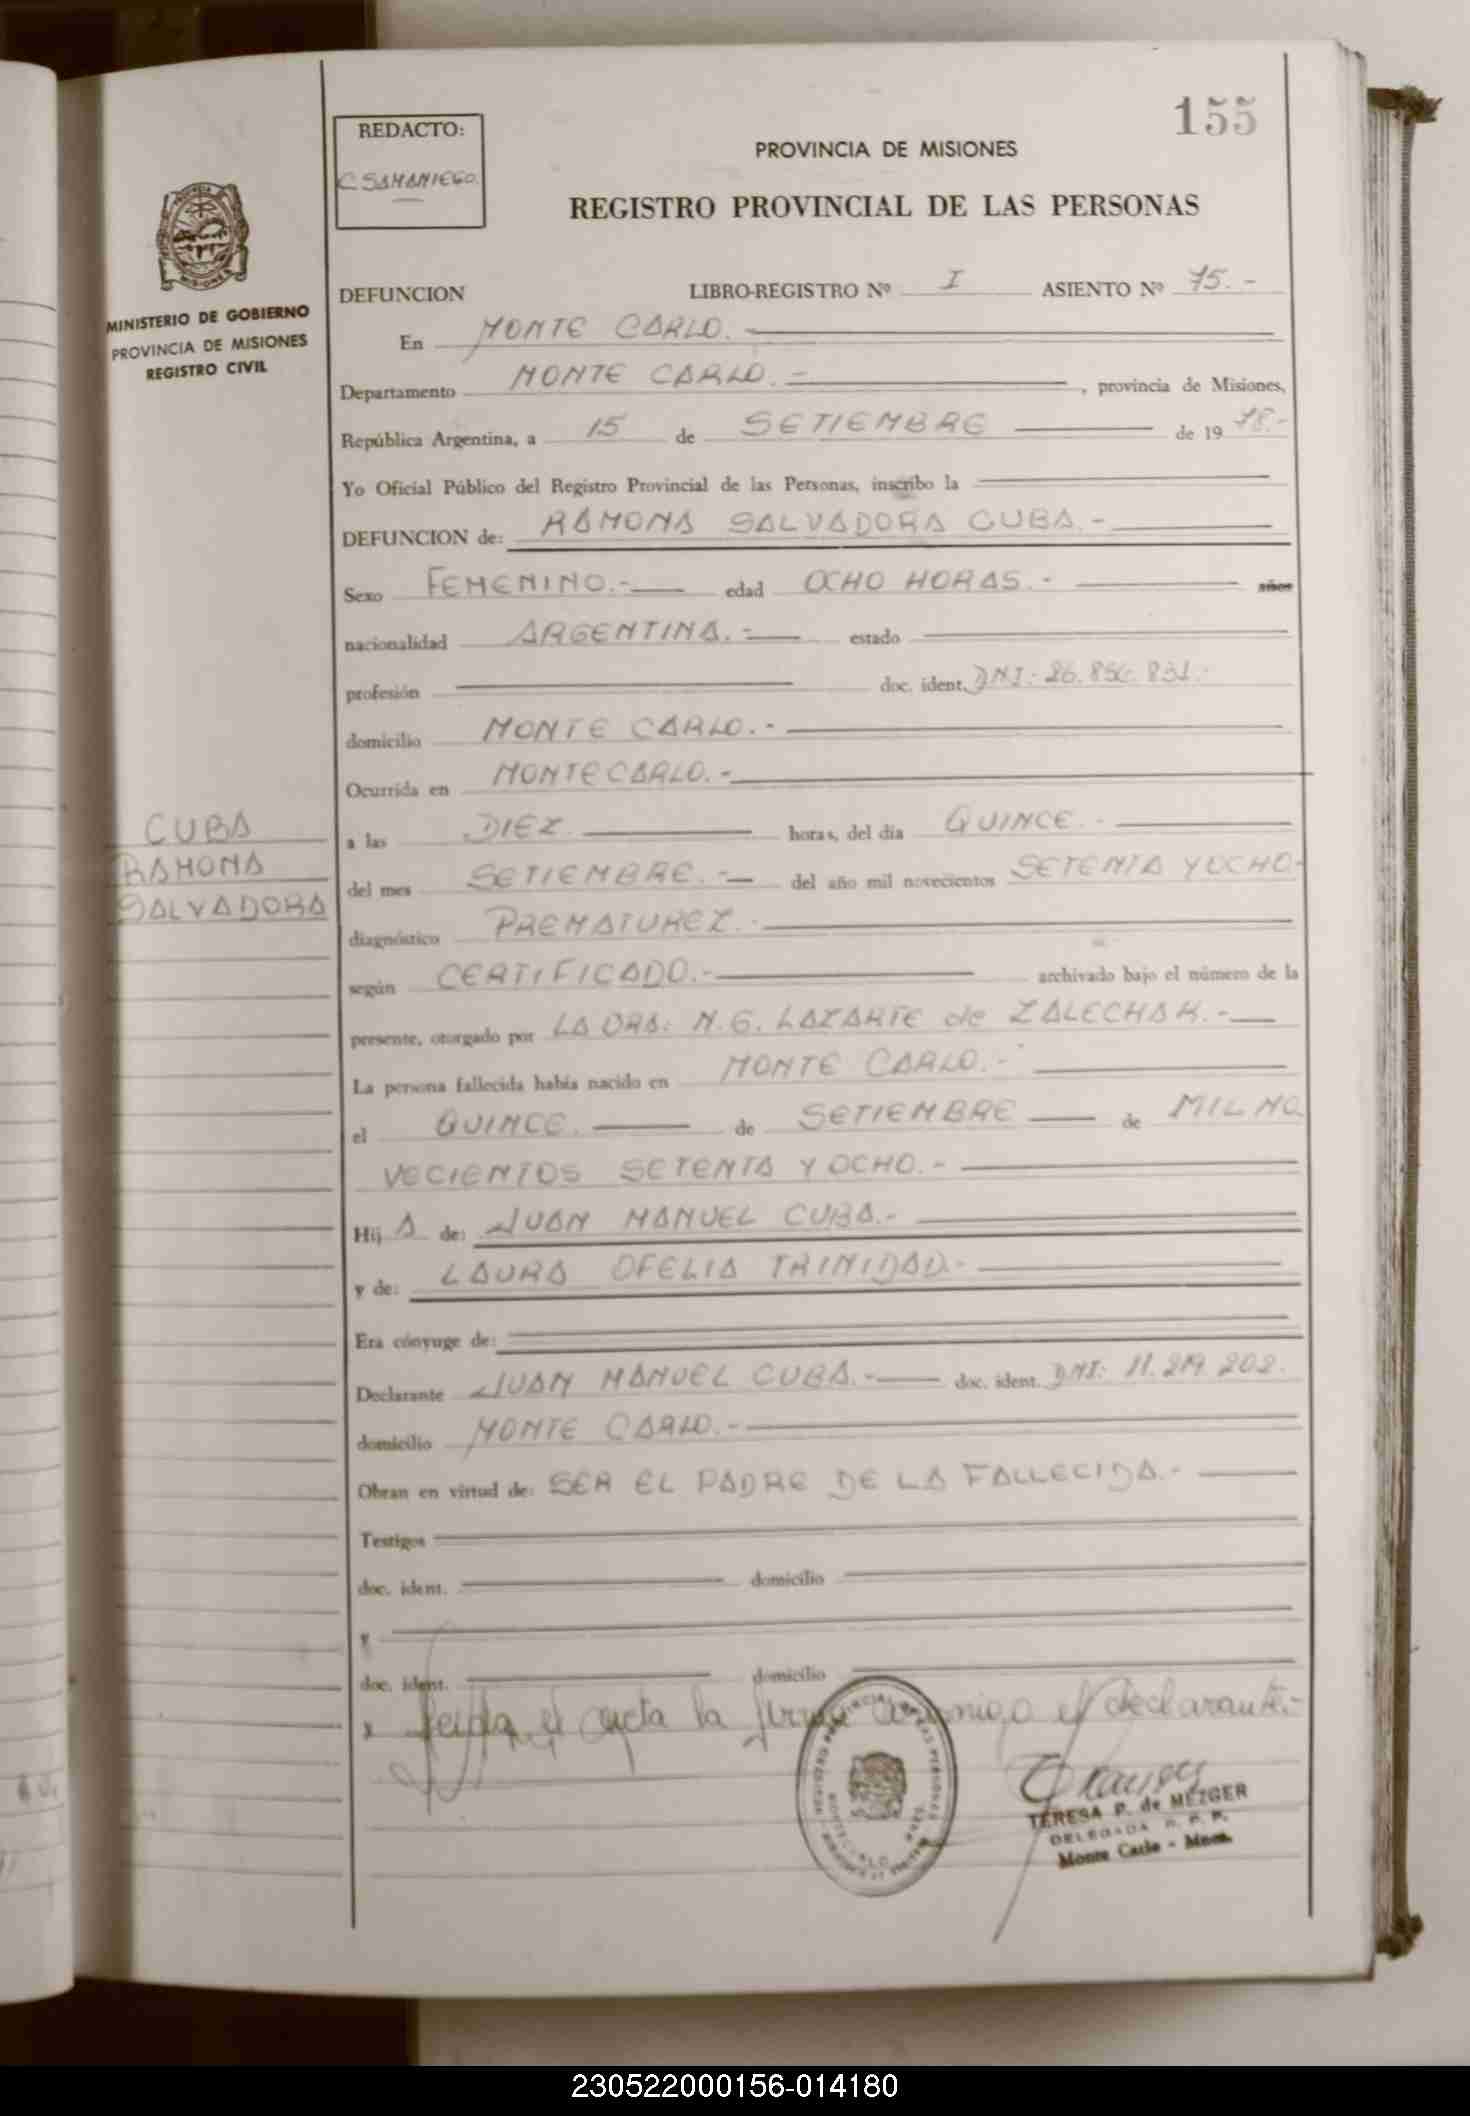 155
REDACTO:
C SAMANIEGO.
PROVINCIA DE MISIONES
REGISTRO PROVINCIAL DE LAS PERSONAS
MINISTERIO DE GOBIERNO
PROVINCIA DE MISIONES
REGISTRO CIVIL
DEFUNCION LIBRO-REGISTRO Nº I ASIENTO Nº 75.-
En MONTE CARLO.
Departamento MONTE CARLO.- , provincia de Misiones,
República Argentina, a 15 de SETIEMBRE de 19 78.-
Yo Oficial Público del Registro Provincial de las Personas, inscribo la
DEFUNCION de: RAMONA SALVADORA CUBA.-
Sexo FEMENINO.- edad OCHO HORAS.- años
nacionalidad ARGENTINA.- estado
profesión doc. ident. DNI:
domicilio MONTE CARLO.-
Ocurrida en MONTECARLO.-
CUBA
RAMONA
SALVADORA
a las DIEZ. horas, del día QUINCE.-
del mes SETIEMBRE.- del año mil novecientos SETENTA Y OCHO-
diagnóstico PREMATUREZ.-
según CERTIFICADO.- archivado bajo el número de la
presente, otorgado por LA DRA: N. G. LAZARTE de ZALECHAK.-
La persona fallecida había nacido en MONTE CARLO.-
el QUINCE. de SETIEMBRE de MIL NO
VECIENTOS SETENTA Y OCHO.-
Hij A de: JUAN MANUEL CUBA.-
y de: LAURA OFELIA TRINIDAD.-
Era cónyuge de:
Declarante JUAN MANUEL CUBA.- doc. ident. DNI: 11.219.202.
domicilio MONTE CARLO.-
Obran en virtud de: SER EL PADRE DE LA FALLECIDA.-
Testigos
doc. ident. domicilio
y
doc. ident. domicilio
Leida el acta la firma conmigo el declarante.-
TERESA P. de MEZGER
DELEGADA R. P. P.
Monte Carlo - Mnes.
230522000156-014180